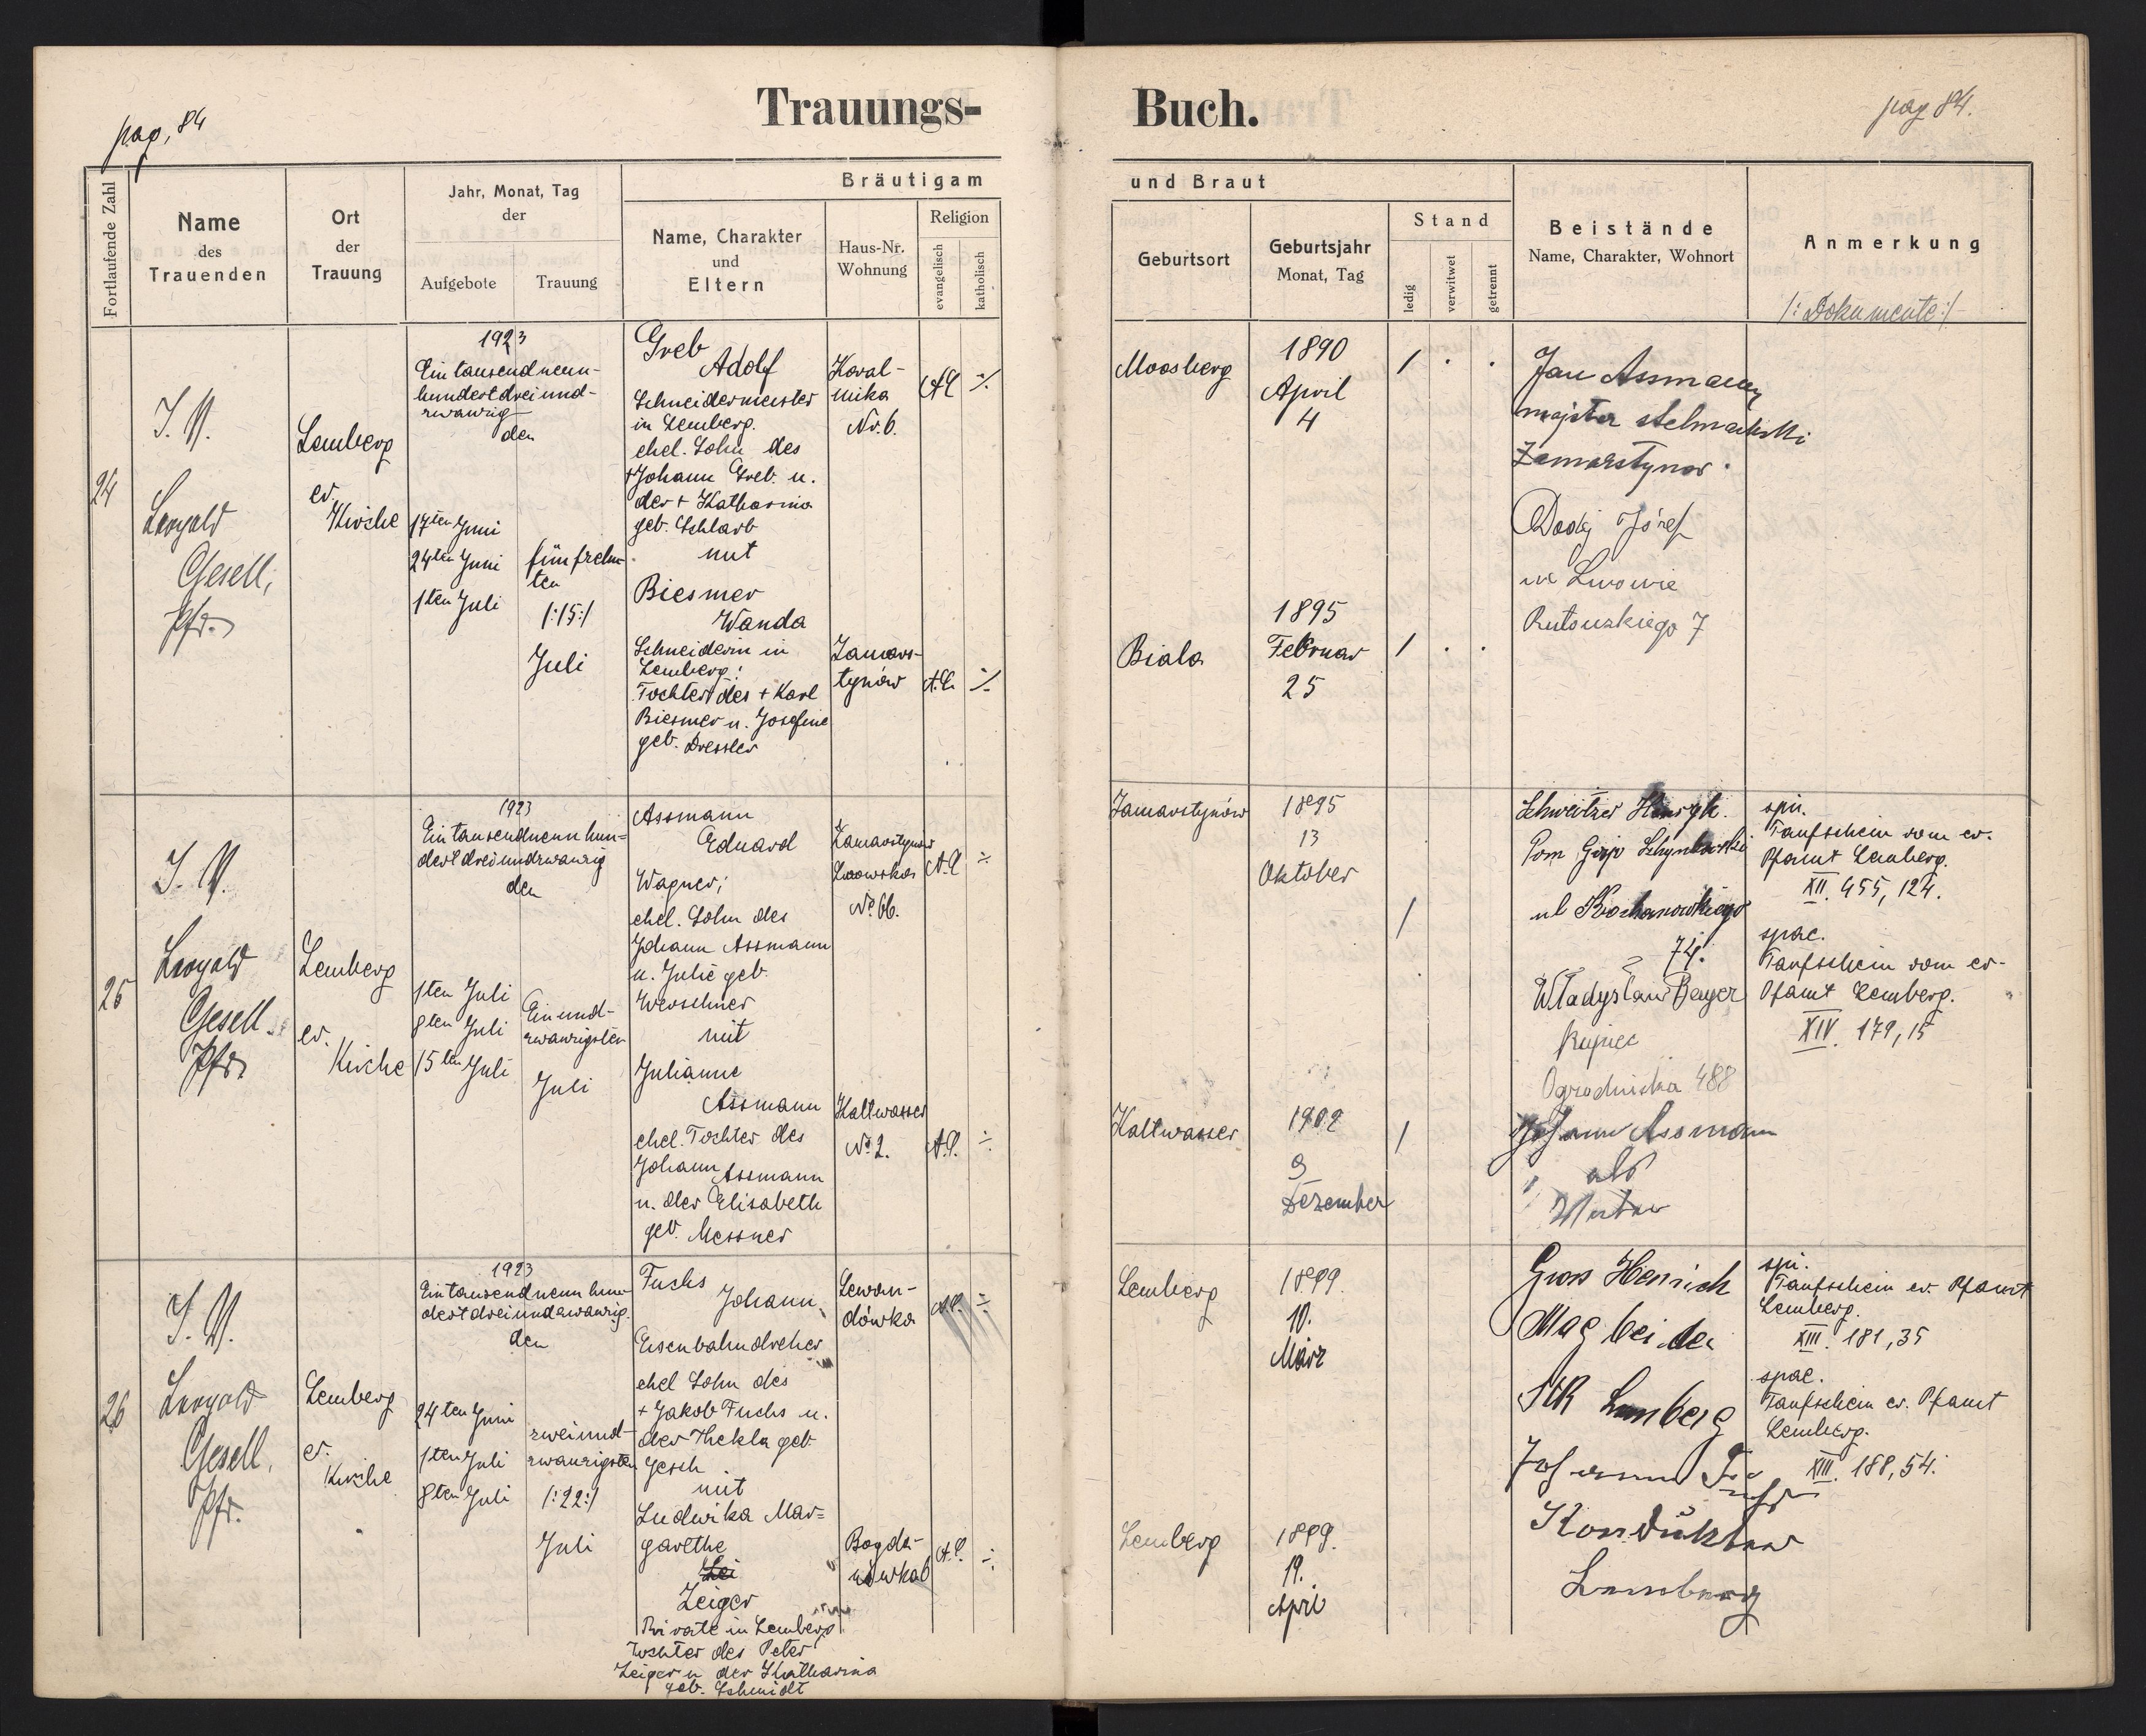 pag. 84
Trauungs-
Fortlaufende Zahl
Name
des
Trauenden
Ort
der
Trauung
Jahr, Monat, Tag
der
Aufgebote
Trauung
Bräutigam
Name, Charakter
und
Eltern
Haus-Nr.
Wohnung
Religion
evangelisch
katholisch
24
Gesell,
Pfr.
Lemberg
ev.
Kirche
1923
Ein tausend neun-
hundert drei und-
zwanzig
den
17ten Juni
24ten Juni
1ten Juli
fünfzehn-
ten
/:15:/
Juli
Greb
Adolf
Schneidermeister
in Lemberg.
ehel. Sohn des
+ Johann Greb u.
der + Katharina
geb. Schlarb
mit
Biesmer
Wanda
Schneiderin in
Lemberg;
Tochter des + Karl
Biesmer u. Josefine
geb. Dressler
Nr. 6.
Zamars-
tynów
A.C.
A.C.
25
Gesell.
Pfr.
Lemberg
ev.
Kirche
1923
Ein tausend neun hun-
dert drei und zwanzig
den
1ten Juli
8ten Juli
15ten Juli
Ein und-
zwanzigsten
Juli
Assmann
Eduard
Wagner;
ehel. Sohn des
Johann Assmann
u. Julie geb.
mit
Julianne
Assmann
ehel. Tochter des
Johann Assmann
u. der Elisabeth
geb. Messner
Zamarstynow
Lwowska
No 66.
Kaltwasser
No 2.
A.C.
A.C.
26
Gesell.
Pfr.
Lemberg
ev.
Kirche
1923
Ein tausend neun hun-
dert drei und zwanzig.
den
24ten Juni
1ten Juli
8ten Juli
zwei und-
zwanzigsten
/:22:/
Juli
Fuchs
Johann,
Eisenbahndreher
ehel Sohn des
+ Jakob Fuchs u.
der Thekla geb.
Jesch
mit
Ludwika Mar=
garethe
Zeiger
Private in Lemberg
Tochter des Peter
Zeiger u der Katharina
geb. Schmidt
Lewan-
dówka
Bogda-
nówka
A.C.
A.C.
Buch.
pag 84.
und Braut
Geburtsort
Geburtsjahr
Monat, Tag
Stand
ledig
verwitwet
getrennt
Beistände
Name, Charakter, Wohnort
Anmerkung
/: Dokumente :/
Moosberg
1890
April
4
Biala
1895
Februar
25
Jan Assmann
majster stelmachski
Zamarstynow.
Józef
we Lwowie
7
Zamarstynów
1895
13
Oktober
Kaltwasser
1902
9
Dezember
Schweitzer
ul Kochanowskiego
74.
Władysław Beyer
Kupiec
Ogrodnicka 488
Johann Assmann
als
Vater
spu.
Taufschein vom ev.
Pfamt Lemberg.
XII. 455, 124.
spae.
Taufschein vom ev-
Pfamt Lemberg.
XIV. 179, 15
Lemberg
1899
10.
März
Lemberg
1899.
19.
April
Gross Heinrich
Mag bei der
Lemberg
Johann Fuchs
Kondukteur
Lemberg
spu.
Taufschein ev. Pfamt
Lemberg.
XIII. 181, 35
spae.
Taufschein ev. Pfamt
Lemberg.
XIII. 188, 54.